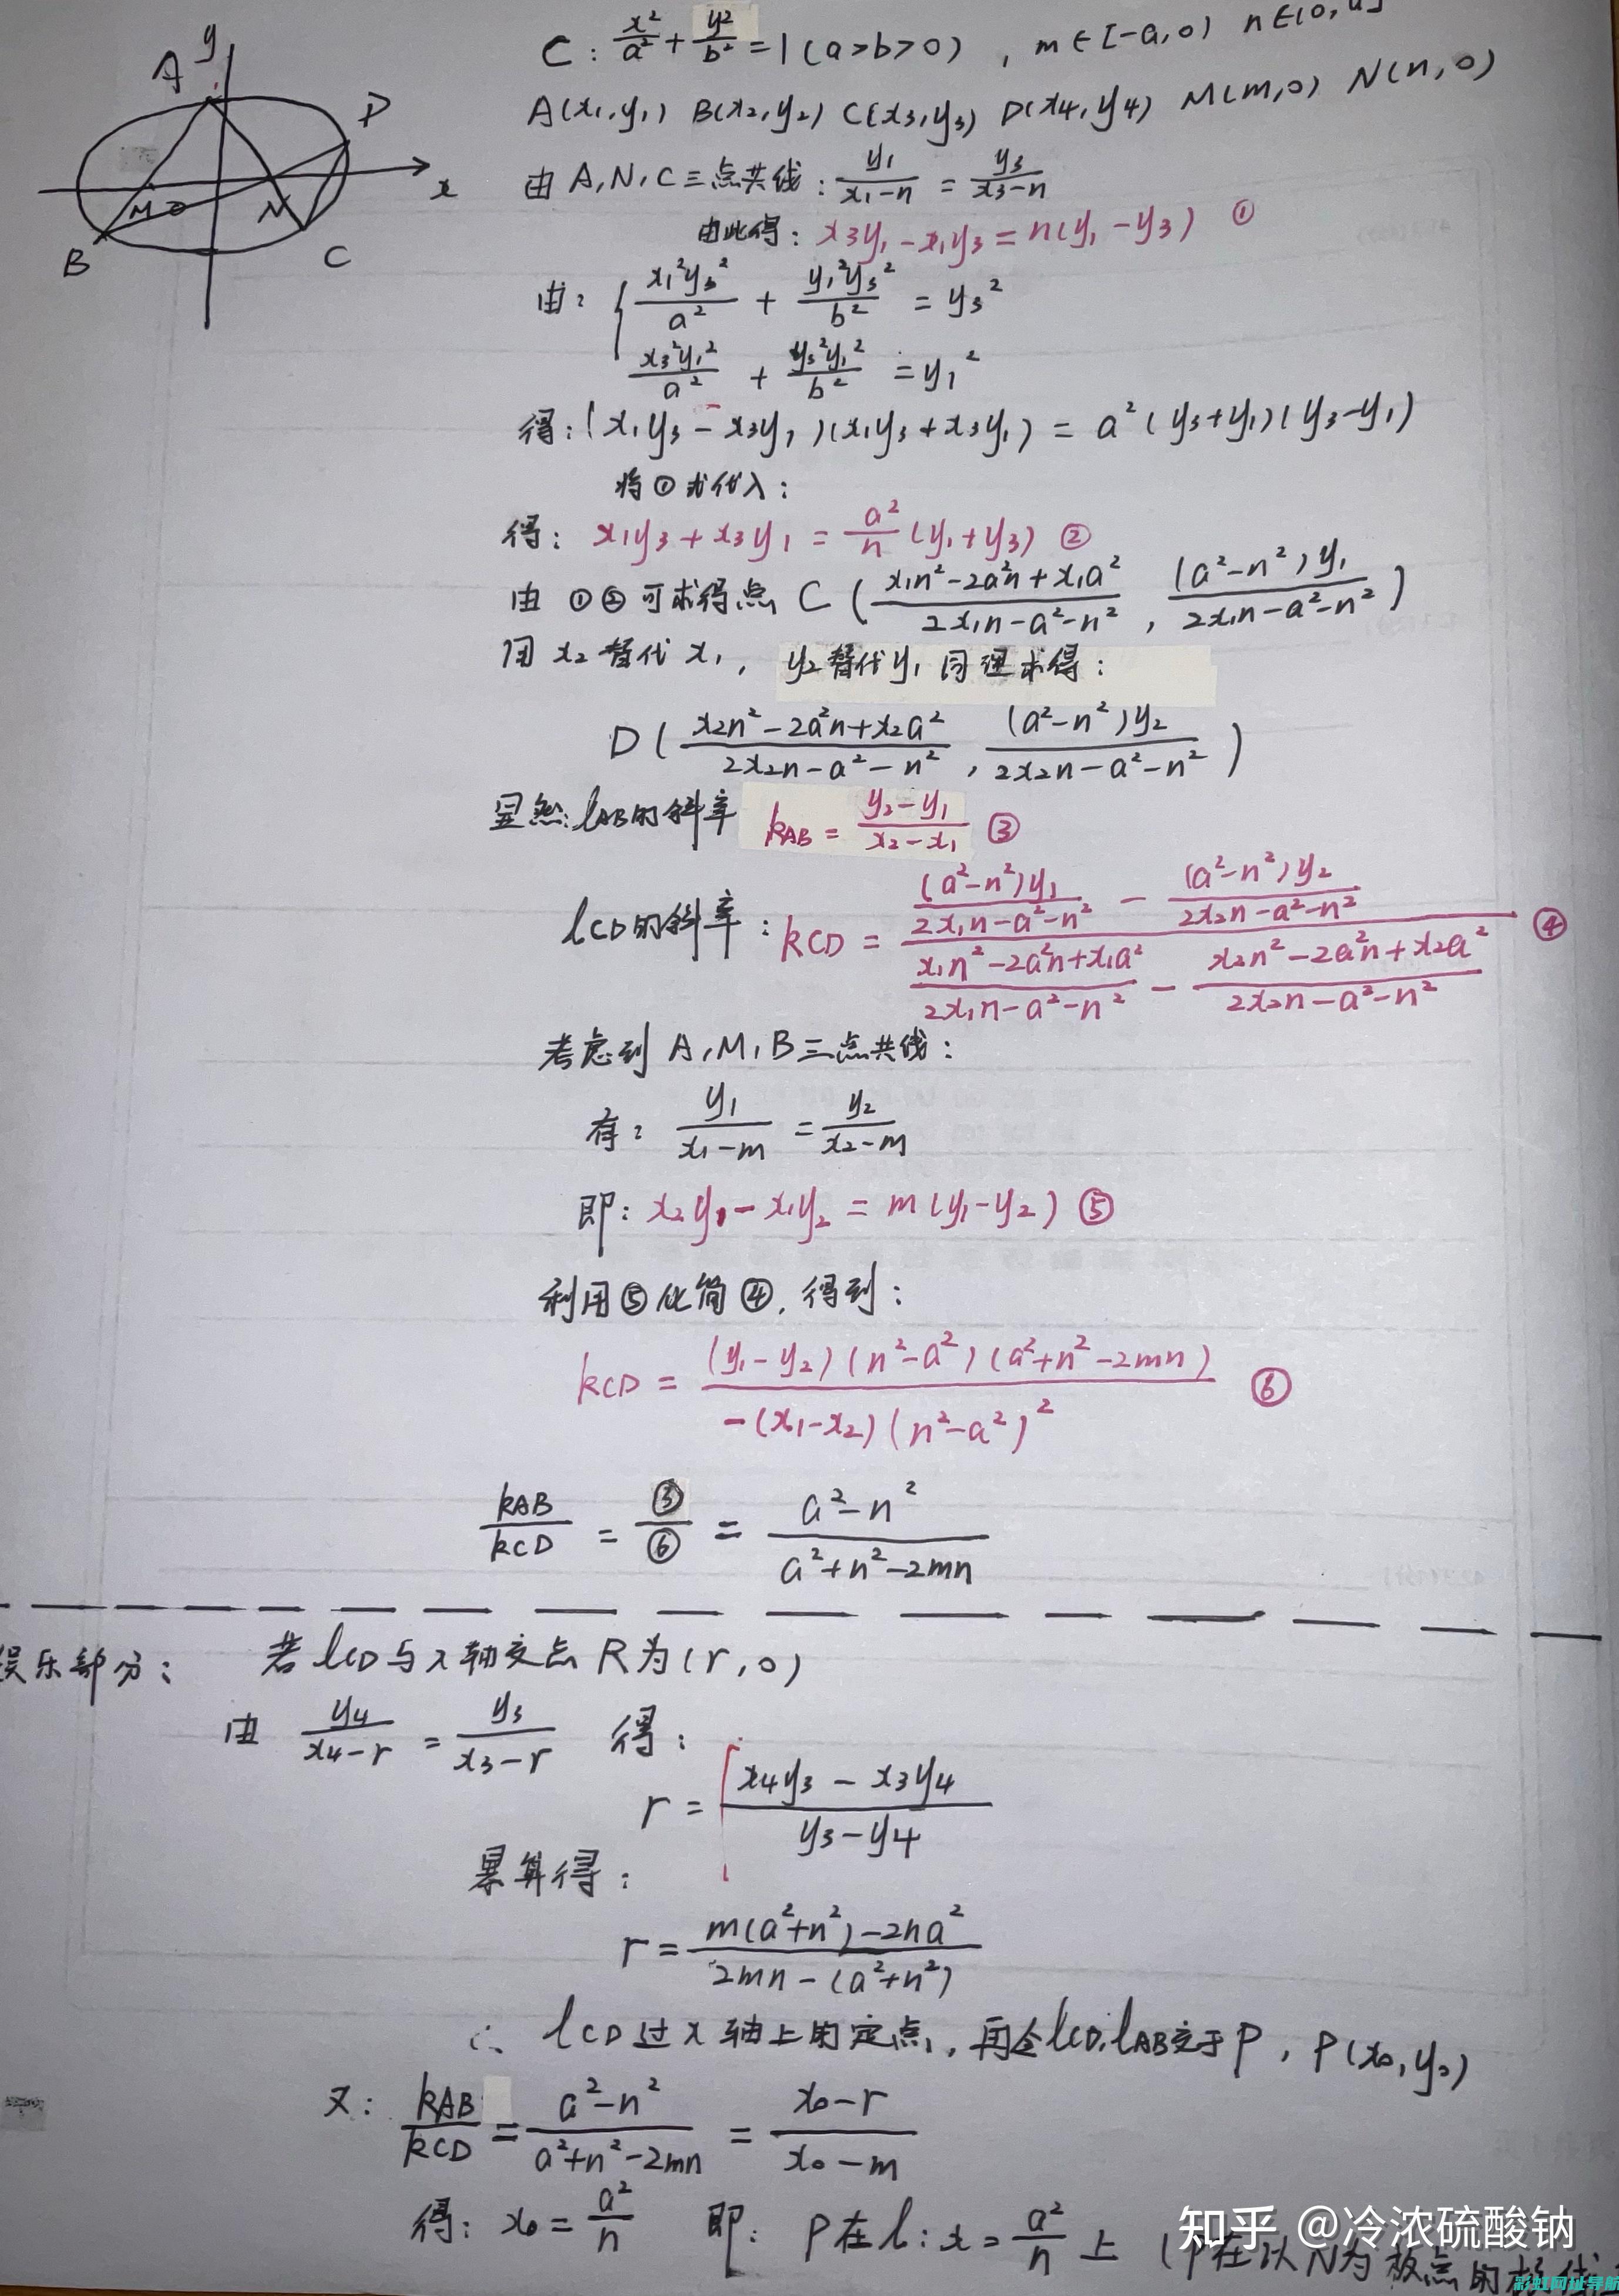 C: x²/a² + y²/b² = 1 (a>b>0), m∈[-a,0) n∈(0,a]
A(x₁,y₁) B(x₂,y₂) C(x₃,y₃) D(x₄,y₄) M(m,0) N(n,0)
A y
D
x
M O N
B C
由A,N,C三点共线: y₁/(x₁-n) = y₃/(x₃-n)
由此得: x₃y₁-x₁y₃=n(y₁-y₃) ①
由: { x₁²y₃²/a² + y₁²y₃²/b² = y₃²
x₃²y₁²/a² + y₃²y₁²/b² = y₁²
得: (x₁y₃-x₃y₁)(x₁y₃+x₃y₁) = a²(y₃+y₁)(y₃-y₁)
将①式代入:
得: x₁y₃+x₃y₁ = a²/n (y₁+y₃) ②
由①②可求得点C( (x₁n²-2a²n+x₁a²)/(2x₁n-a²-n²), (a²-n²)y₁/(2x₁n-a²-n²) )
用x₂替代x₁, y₂替代y₁同理求得:
D( (x₂n²-2a²n+x₂a²)/(2x₂n-a²-n²), (a²-n²)y₂/(2x₂n-a²-n²) )
显然:lAB的斜率 kAB = (y₂-y₁)/(x₂-x₁) ③
lCD的斜率: kCD = ( (a²-n²)y₁/(2x₁n-a²-n²) - (a²-n²)y₂/(2x₂n-a²-n²) ) / ( (x₁n²-2a²n+x₁a²)/(2x₁n-a²-n²) - (x₂n²-2a²n+x₂a²)/(2x₂n-a²-n²) ) ④
考虑到A,M,B三点共线:
有: y₁/(x₁-m) = y₂/(x₂-m)
即: x₂y₁-x₁y₂=m(y₁-y₂) ⑤
利用⑤化简④,得到:
kCD = (y₁-y₂)(n²-a²)(a²+n²-2mn) / -(x₁-x₂)(n²-a²)² ⑥
kAB/kCD = ③/⑥ = (a²-n²)/(a²+n²-2mn)
娱乐部分: 若lCD与x轴交点R为(r,0)
由 y₄/(x₄-r) = y₃/(x₃-r) 得:
r = (x₄y₃-x₃y₄)/(y₃-y₄)
累算得:
r = (m(a²+n²)-2na²)/(2mn-(a²+n²))
∴ lCD过x轴上的定点,再令lCD,lAB交于P, P(x₀,y₀)
又: kAB/kCD = (a²-n²)/(a²+n²-2mn) = (x₀-r)/(x₀-m)
得: x₀=a²/n 即: P在l: x=a²/n 上 (P在以N为极点的极线
知乎 @冷浓硫酸钠
彩虹网址导航